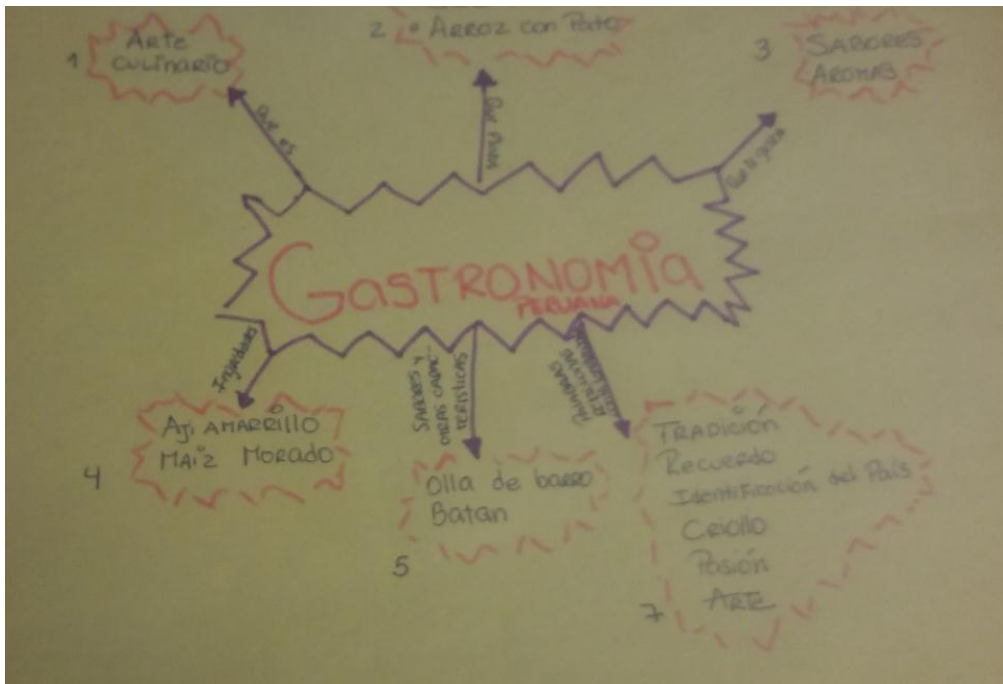 1
Arte
CULINARIO
2
• ARROZ con Pato
3
SABORES
AROMAS
Que es
GASTRONOMÍA
PERUANA
SABORES Y
OTRAS CARAC-
TERISTICAS
4
Aji AMARRILLO
MAÍZ MORADO
5
Olla de barro
Batan
7
TRADICIÓN
Recuerdo
Identificación del País
Criollo
Pasión
ARTE